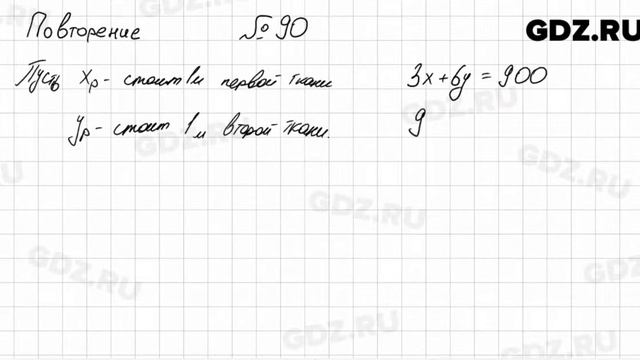 Повторение № 90
GDZ.RU
Пусть х р - стоит 1 м первой ткани 3x + 6y = 900
у р - стоит 1 м второй ткани. 9
GDZ.RU
GDZ.RU
GDZ.RU
GDZ.RU
GDZ.RU
GDZ.RU
GDZ.RU